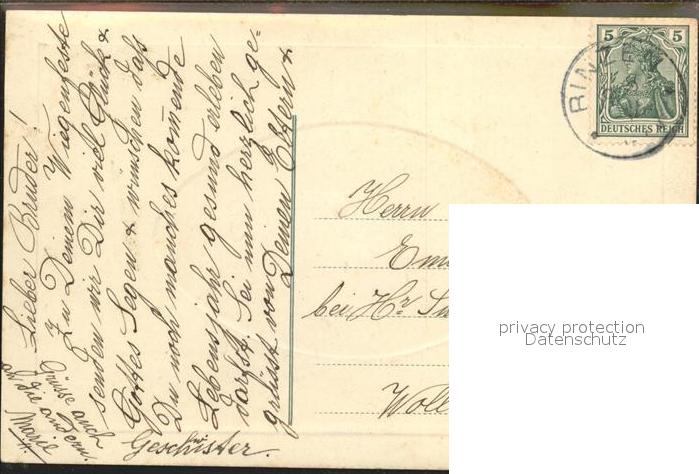 Lieber Bruder!
Zu Deinem Wiegenfeste
senden wir Dir viel Glück &
Gottes Segen & wünschen daß
Du noch manches kom̄ende
Lebensjahr gesund erleben
darfst. Sei nun herzlich ge-
grüsst von Deinen Eltern &
Geschwister.
Grüsse auch
an die andern.
Marie
5 5
DEUTSCHES REICH
Herrn
bei Hr.
privacy protection
Datenschutz